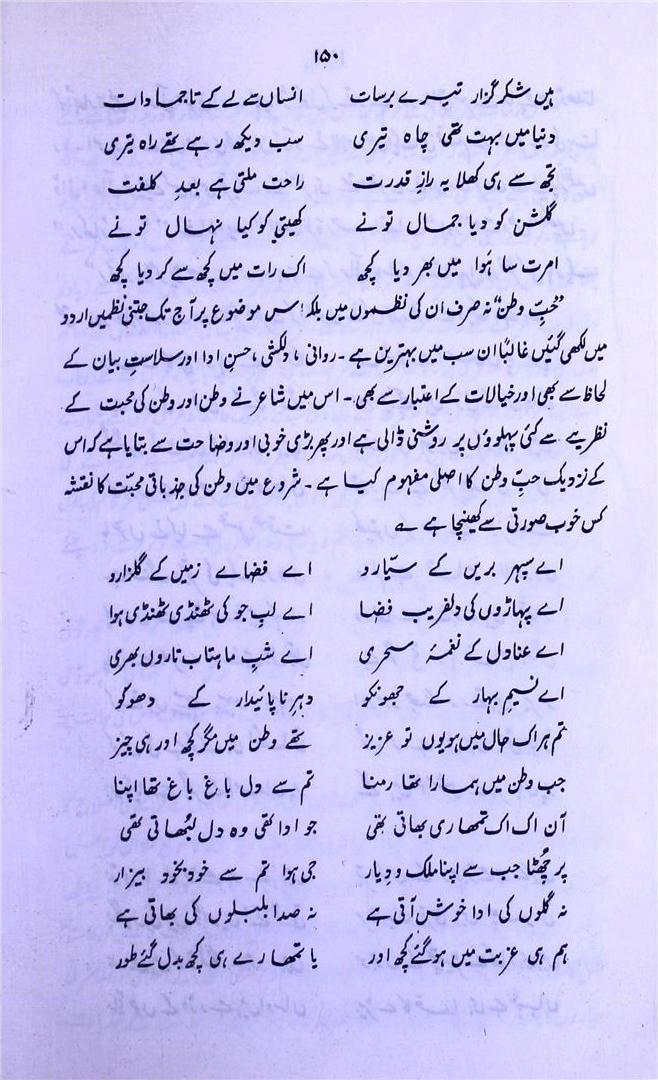 ۱۵۰
ہیں شکر گزار تیرے برسات انساں سے لے کے تا جمادات
دنیا میں بہت تھی چاہ تیری سب دیکھ رہے تھے راہ تیری
تجھ سے ہی کھلا یہ رازِ قدرت راحت ملتی ہے بعدِ کلفت
گلشن کو دیا جمال تو نے کھیتی کو کیا نہال تو نے
امرت سا ہوا میں بھر دیا کچھ اک رات میں کچھ سے کر دیا کچھ
”حبِّ وطن“ نہ صرف ان کی نظموں میں بلکہ اس موضوع پر آج تک جتنی نظمیں اردو
میں لکھی گئیں غالباً ان سب میں بہترین ہے۔ روانی، دلکشی، حسنِ ادا اور سلاستِ بیان کے
لحاظ سے بھی اور خیالات کے اعتبار سے بھی۔ اس میں شاعر نے وطن اور وطن کی محبت کے
نظریے سے کئی پہلوؤں پر روشنی ڈالی ہے اور پھر بڑی خوبی اور وضاحت سے بتایا ہے کہ اس
کے نزدیک حبِّ وطن کا اصلی مفہوم کیا ہے۔ شروع میں وطن کی جذباتی محبّت کا نقشہ
کس خوب صورتی سے کھینچا ہے ؎
اے سپہرِ بریں کے سیّارو اے فضائے زمیں کے گلزارو
اے پہاڑوں کی دلفریب فضا اے لبِ جو کی ٹھنڈی ٹھنڈی ہوا
اے عنادل کے نغمۂ سحری اے شبِ ماہتاب تاروں بھری
اے نسیمِ بہار کے جھونکو دہرِ ناپائیدار کے دھوکو
تم ہر اک حال میں ہو یوں تو عزیز تھے وطن میں مگر کچھ اور ہی چیز
جب وطن میں ہمارا تھا رمنا تم سے دل باغ باغ تھا اپنا
آن اک اک تمھاری بھاتی تھی جو ادا تھی وہ دل لبُھاتی تھی
پر چُھٹا جب سے اپنا ملک و دیار جی ہوا تم سے خود بخود بیزار
نہ گلوں کی ادا خوش آتی ہے نہ صدا بلبلوں کی بھاتی ہے
ہم ہی غربت میں ہو گئے کچھ اور یا تمھارے ہی کچھ بدل گئے طور